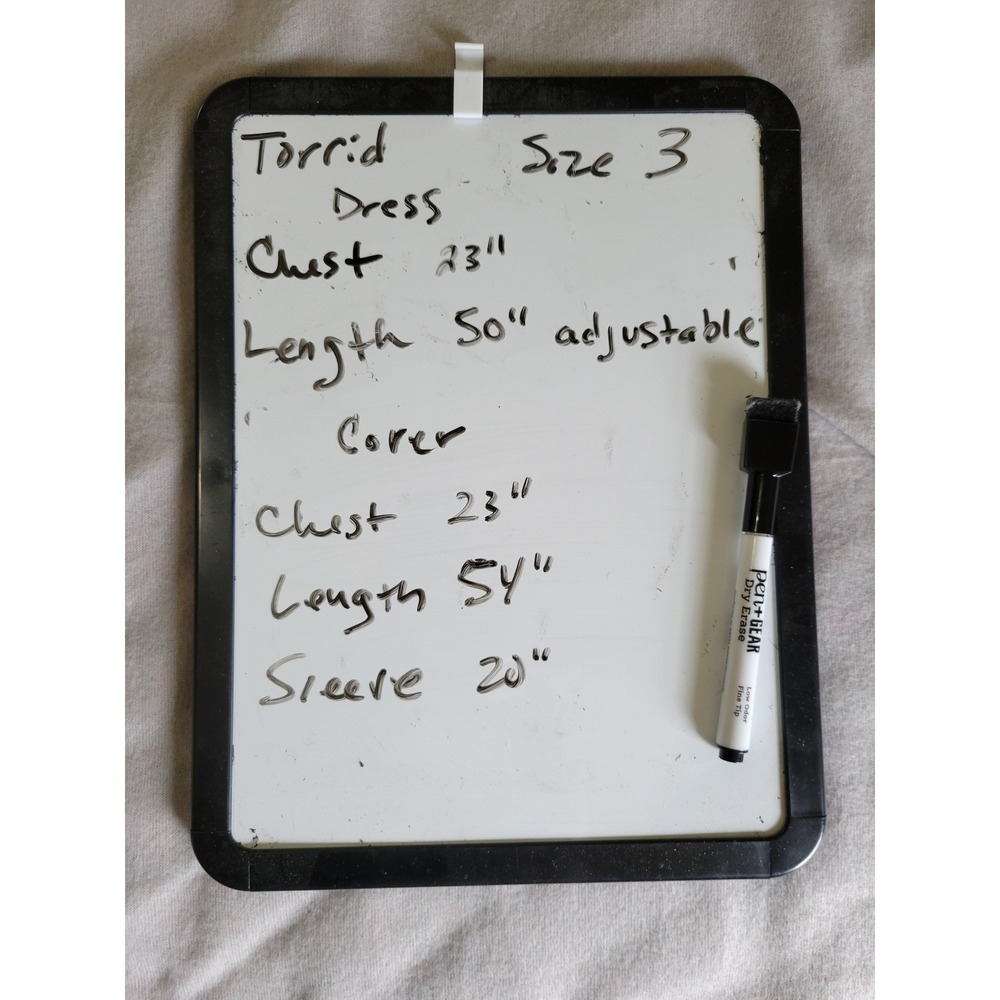 Torrid Size 3
Dress
Chest 23"
Length 50" adjustable
Cover
Chest 23"
Length 54"
Sleeve 20"
pen+GEAR
Dry Erase
Low Odor
Fine Tip